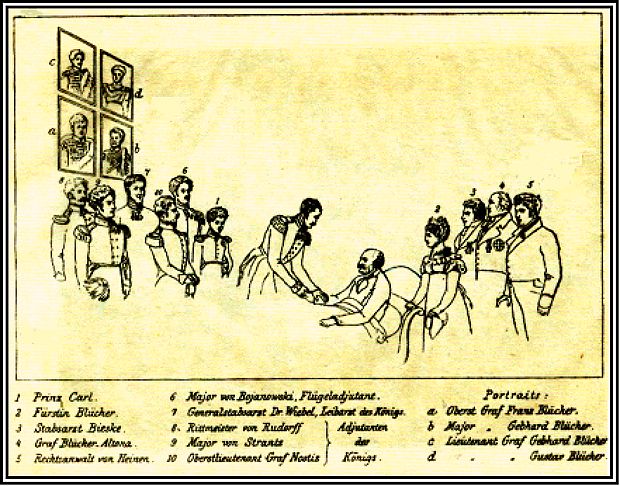 c
d
a
b
8 7 6
10 1
2 3 4 5
1 Prinz Carl.
2 Fürstin Blücher.
3 Stabsarzt Bieske.
4 Graf Blücher-Altona.
5 Rechtsanwalt von Heinen.
6 Major von Bojanowski, Flügeladjutant.
7 Generalstabsarzt Dr. Wiebel, Leibarzt des Königs.
8 Rittmeister von Rudorff
9 Major von Strantz
10 Oberstlieutenant Graf Nostis
Adjutanten
des
Königs.
Portraits:
a Oberst Graf Franz Blücher.
b Major „ Gebhard Blücher.
c Lieutenant Graf Gebhard Blücher
d „ „ Gustav Blücher.